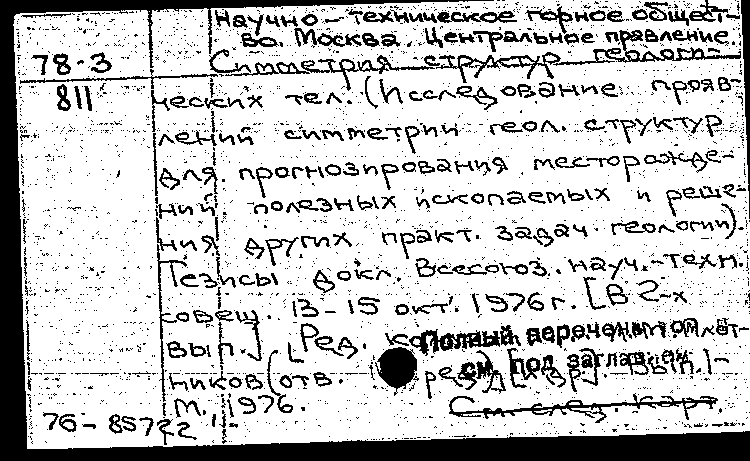 Научно-техническое горное общест-
во. Москва. Центральное правление
78-3
Симметрия структур геологи-
811
ческих тел. (Исследование прояв-
лений симметрии геол. структур
для прогнозирования месторожде-
ний полезных ископаемых и реше-
ния других практ. задач геологии).
Тезисы докл. Всесоюз. науч.-техн.
совещ. 13-15 окт. 1976 г. [В 2-х
вып.] [Ред.
Полный перечень томов
см. под заглавием
ников (отв. ред.) Вып. 1-
М., 1976.
См. след. карт.
76-85722